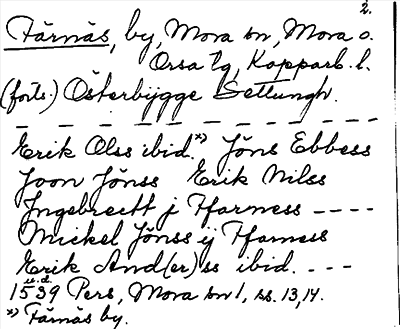 2.
Färnäs, by, Mora sn, Mora o.
Orsa tg, Kopparb. l.
(forts.) Österbygge Settungh.
— — — — — — — — — —
Erik Olss ibid.*) Jöns Ebbess
Joon Jönss Erik Nilss
Ingebrectt j Ffarness ----
Mickel Jönss ij Ffarness
Erik And(er)ss ibid. ---
1539 u.d. Pers, Mora sn 1, ss. 13, 14.
*) Färnäs by.